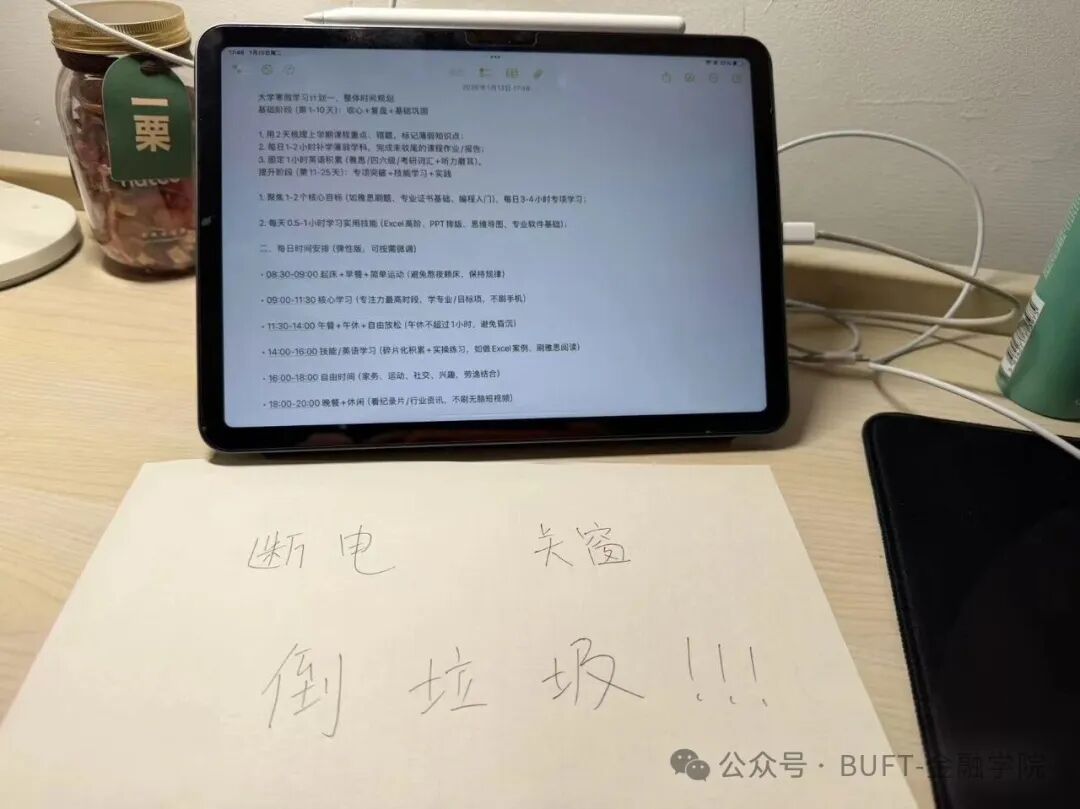 17:48 1月13日周二
2026年1月13日 17:48
大学寒假学习计划一、整体时间规划
基础阶段（第1-10天）：收心+复盘+基础巩固
1. 用2天梳理上学期课程重点、错题，标记薄弱知识点；
2. 每日1-2小时补学薄弱学科，完成未收尾的课程作业/报告；
3. 固定1小时英语积累（雅思/四六级/考研词汇+听力磨耳）。
提升阶段（第11-25天）：专项突破+技能学习+实践
1. 聚焦1-2个核心目标（如雅思刷题、专业证书基础、编程入门），每日3-4小时专项学习；
2. 每天0.5-1小时学习实用技能（Excel高阶、PPT排版、思维导图、专业软件基础）；
二、每日时间安排（弹性版，可按需微调）
• 08:30-09:00 起床+早餐+简单运动（避免熬夜赖床，保持规律）
• 09:00-11:30 核心学习（专注力最高时段，学专业/目标项，不刷手机）
• 11:30-14:00 午餐+午休+自由放松（午休不超过1小时，避免昏沉）
• 14:00-16:00 技能/英语学习（碎片化积累+实操练习，如做Excel案例、刷雅思阅读）
• 16:00-18:00 自由时间（家务、运动、社交、兴趣，劳逸结合）
• 18:00-20:00 晚餐+休闲（看纪录片/行业资讯，不刷无脑短视频）
一栗
断电 关窗
倒垃圾!!!
公众号 · BUFT-金融学院